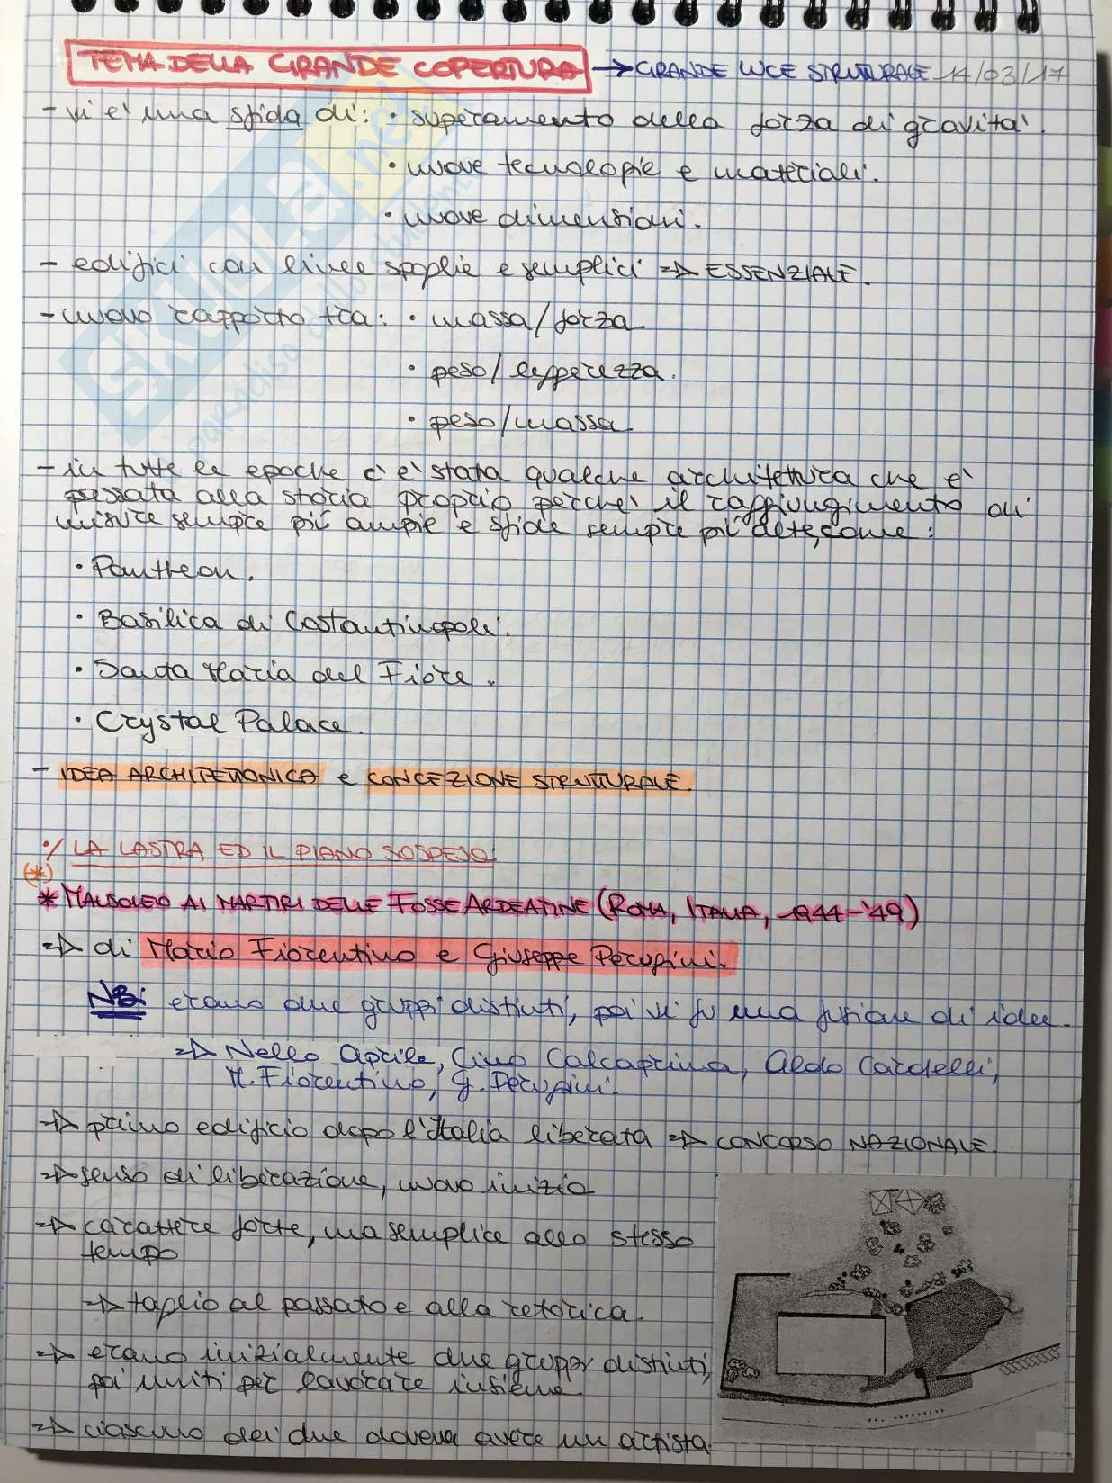 TEMA DELLA GRANDE COPERTURA → GRANDE LUCE STRUTTURALE 14/03/17
- vi è una sfida di: • superamento della forza di gravità.
• nuove tecnologie e materiali.
• nuove dimensioni.
- edifici con linee spoglie e semplici ⇒ ESSENZIALE.
- nuovo rapporto tra: • massa/forza
• peso/leggerezza.
• peso/massa
- in tutte le epoche c'è stata qualche architettura che è
passata alla storia proprio perchè il raggiungimento di
misure sempre più ampie e sfide sempre più alte, come:
• Pantheon.
• Basilica di Costantinopoli.
• Santa Maria del Fiore.
• Crystal Palace.
- IDEA ARCHITETTONICA e CONCEZIONE STRUTTURALE.
•/ LA LASTRA ED IL PIANO SOSPESO
(*)
* MAUSOLEO AI MARTIRI DELLE FOSSE ARDEATINE (ROMA, ITALIA, 1944-'49)
⇒ di Mario Fiorentino e Giuseppe Perugini.
NB: erano due gruppi distinti, poi vi fu una fusione di idee.
⇒ Nello Aprile, Cino Calcaprina, Aldo Cardelli,
M. Fiorentino, G. Perugini.
⇒ primo edificio dopo l'Italia liberata ⇒ CONCORSO NAZIONALE.
⇒ senso di liberazione, nuovo inizio
⇒ carattere forte, ma semplice allo stesso
tempo
⇒ taglio al passato e alla retorica.
⇒ erano inizialmente due gruppi distinti,
poi uniti per lavorare insieme
⇒ ciascuno dei due doveva avere un artista